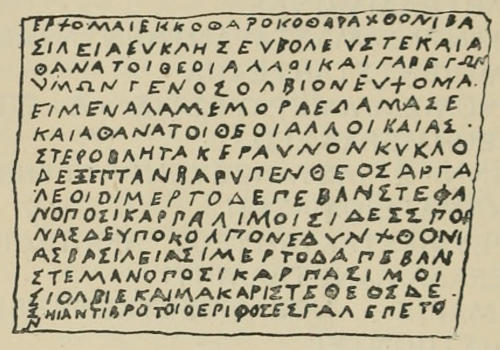 ΕΡΧΟΜΑΙΕΚΚΟΘΑΡΟΚΟΘΑΡΑΧΘΟΝΙΒΑ
ΣΙΛΕΙΑΕΥΚΛΗΣΕΥΒΟΛΕΥΣΤΕΚΑΙΑ
ΘΑΝΑΤΟΙΘΕΟΙΑΛΛΟΙΚΑΙΓΑΡΕΓΩΝ
ΥΜΩΝΓΕΝΟΣΟΛΒΙΟΝΕΥΧΟΜΑ
ΕΙΜΕΝΑΛΑΜΕΜΟΡΑΕΔΑΜΑΣΕ
ΚΑΙΑΘΑΝΑΤΟΙΘΕΟΙΑΛΛΟΙΚΑΙΑΣ
ΣΤΕΡΟΒΛΗΤΑΚΕΡΑΥΝΟΝΚΥΚΛΟ
ΔΕΞΕΠΤΑΝΒΑΡΥΠΕΝΘΕΟΣΑΡΓΑ
ΛΕΟΙΟΙΜΕΡΤΟΔΕΠΕΒΑΝΣΤΕΦΑ
ΝΟΠΟΣΙΚΑΡΠΑΛΙΜΟΙΣΙΔΕΣΣΠΟΡ
ΝΑΣΔΕΥΠΟΚΟΛΠΟΝΕΔΥΝΧΘΟΝΙ
ΑΣΒΑΣΙΛΕΙΑΣΙΜΕΡΤΟΔΑΠΕΒΑΝ
ΣΤΕΜΑΝΟΠΟΣΙΚΑΡΠΑΣΙΜΟΙ
ΣΙΟΛΒΙΕΚΑΙΜΑΚΑΡΙΣΤΕΘΕΟΣΔΕ
ΣΗΙΑΝΤΙΒΡΟΤΟΙΟΕΡΙΦΟΣΕΣΓΑΛΕΠΕΤΟ
Ν